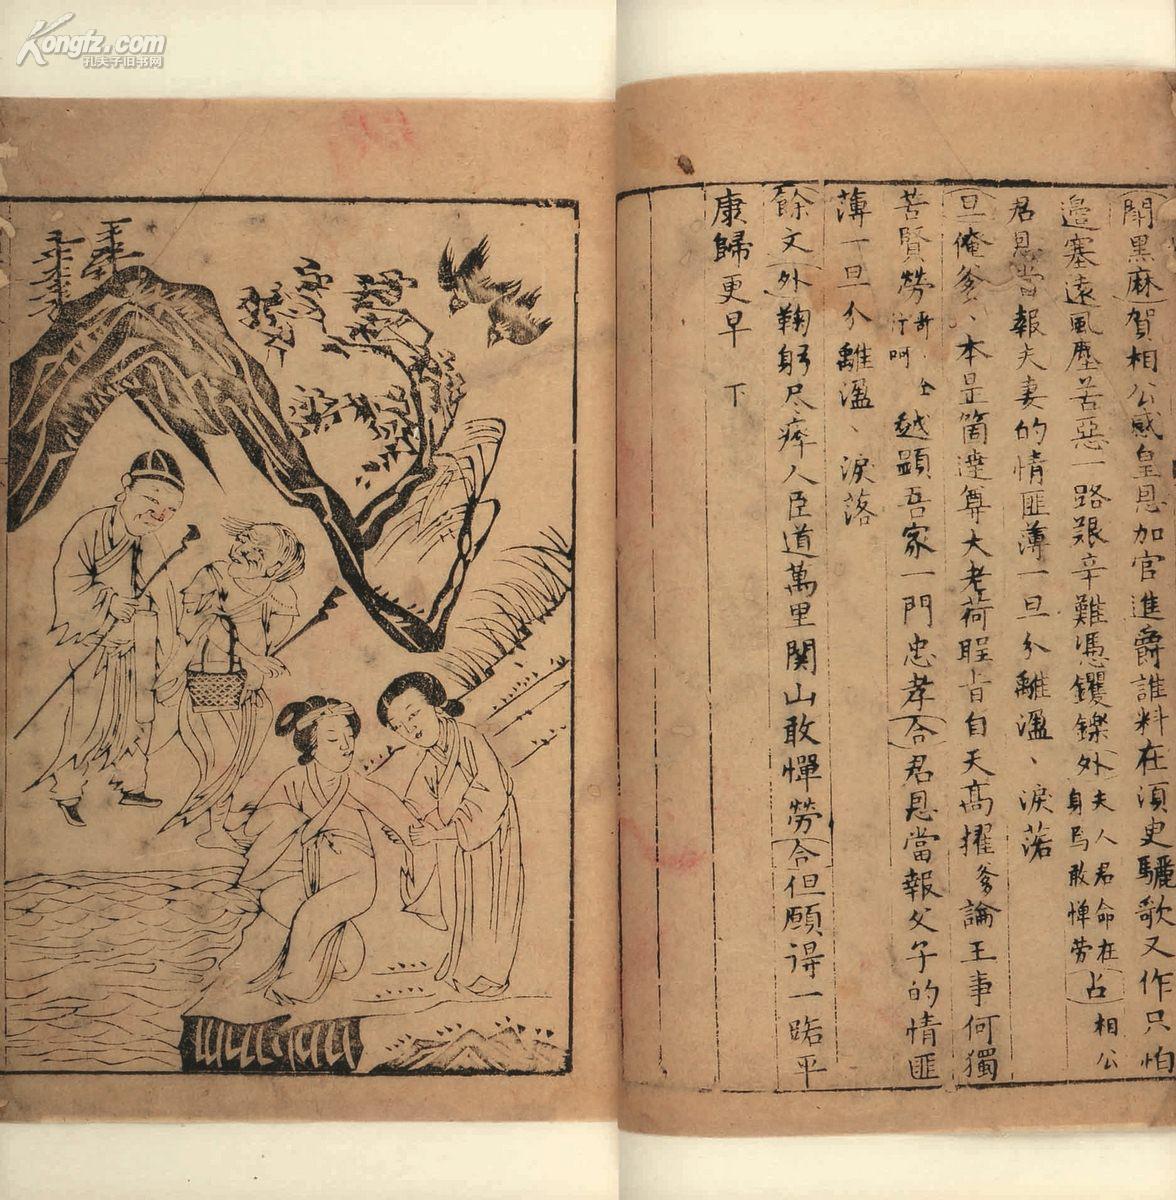 Kongfz.com
孔夫子旧书网
鬪黑麻賀相公感皇恩加官進爵誰料在湏史驪歌又作只怕
邉塞遠風塵苦惡一路艱辛難憑钁鑠外夫人君命在身焉敢惮劳占相公
君恩當報夫妻的情匪薄一旦分離溫、淚落
旦俺爹、本是箇達尊大老荷 旨自天髙擢爹論王事何獨
苦賢勞 越顕吾家一門忠孝合君恩當報父子的情匪
薄一旦分離溫、淚落
餘文外鞠躬尽瘁人臣道萬里関山敢憚勞合但願得一路平
康歸更早 下